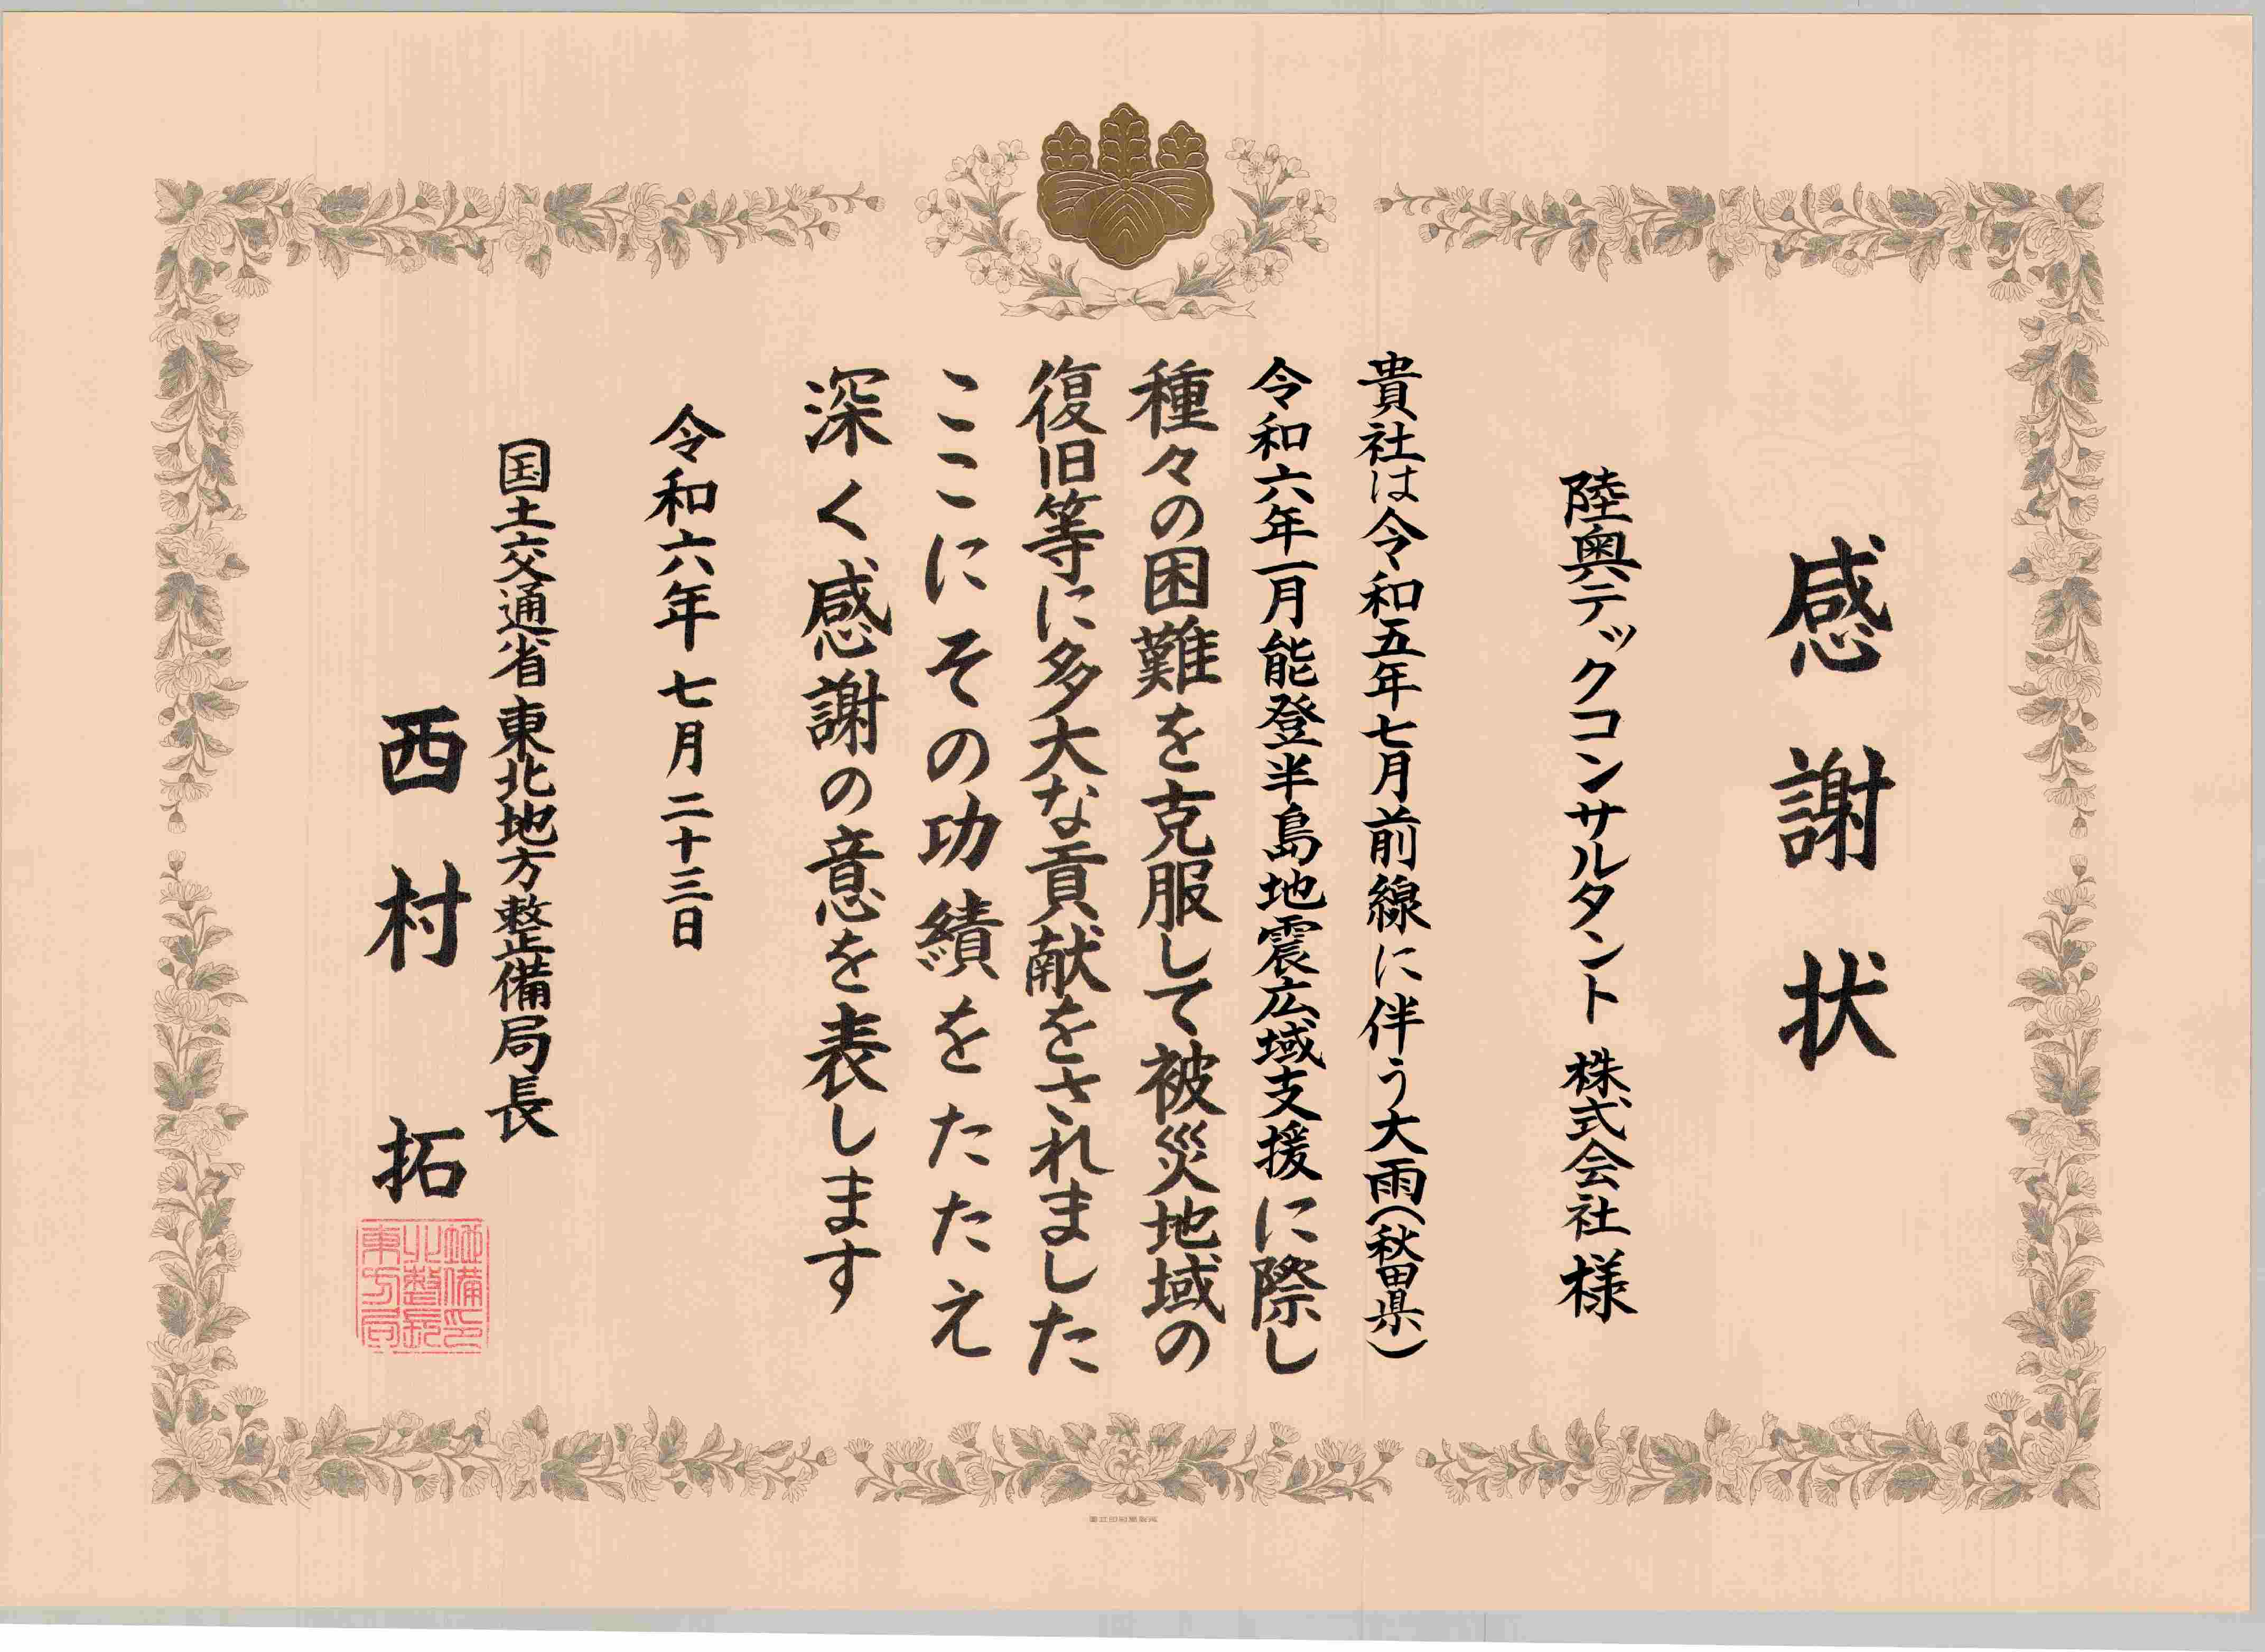 感謝状
陸奥テックコンサルタント 株式会社 様
貴社は令和五年七月前線に伴う大雨(秋田県)
令和六年一月能登半島地震広域支援に際し
種々の困難を克服して被災地域の
復旧等に多大な貢献をされました
ここにその功績をたたえ
深く感謝の意を表します
令和六年七月二十三日
国土交通省東北地方整備局長
西村 拓